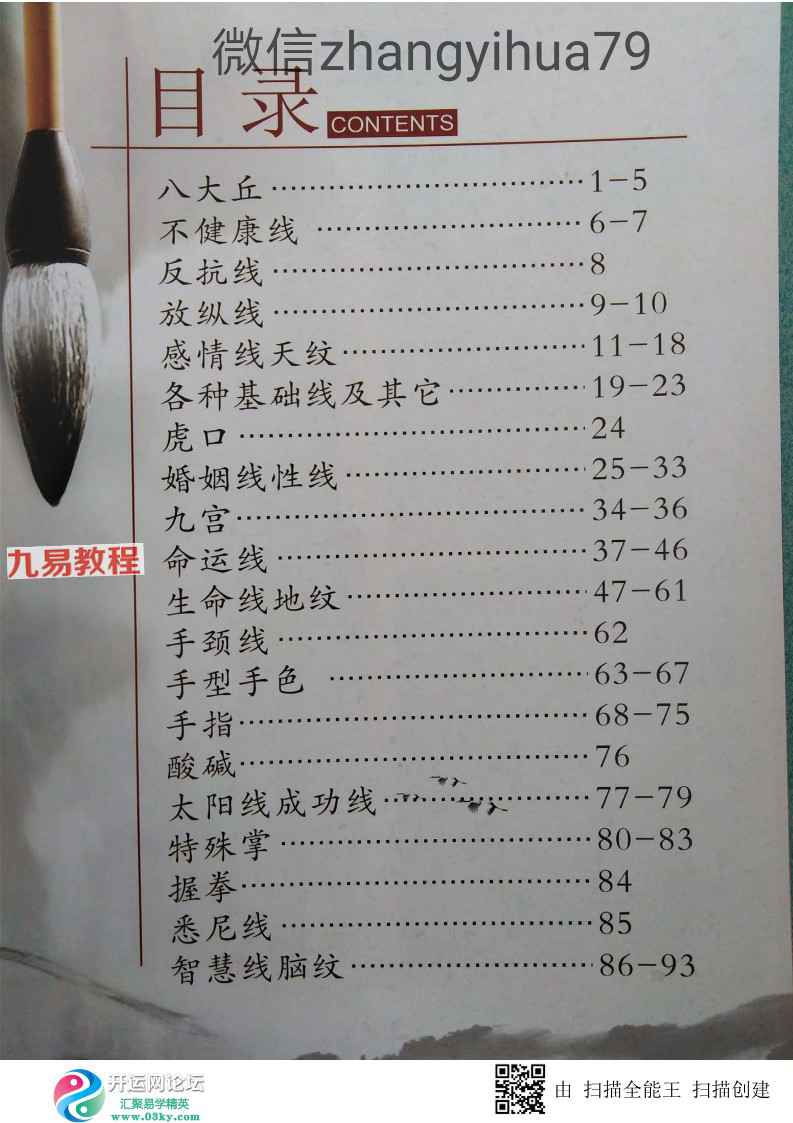 微信zhangyihua79
目录 CONTENTS
八大丘……………………………1-5
不健康线 ………………………6-7
反抗线……………………………8
放纵线……………………………9-10
感情线天纹………………………11-18
各种基础线及其它……………19-23
虎口………………………………24
婚姻线性线………………………25-33
九宫………………………………34-36
九易教程
命运线……………………………37-46
生命线地纹………………………47-61
手颈线……………………………62
手型手色 ………………………63-67
手指………………………………68-75
酸碱………………………………76
太阳线成功线……………………77-79
特殊掌……………………………80-83
握拳………………………………84
悉尼线……………………………85
智慧线脑纹………………………86-93
开运网论坛
汇聚易学精英
www.03ky.com
由 扫描全能王 扫描创建